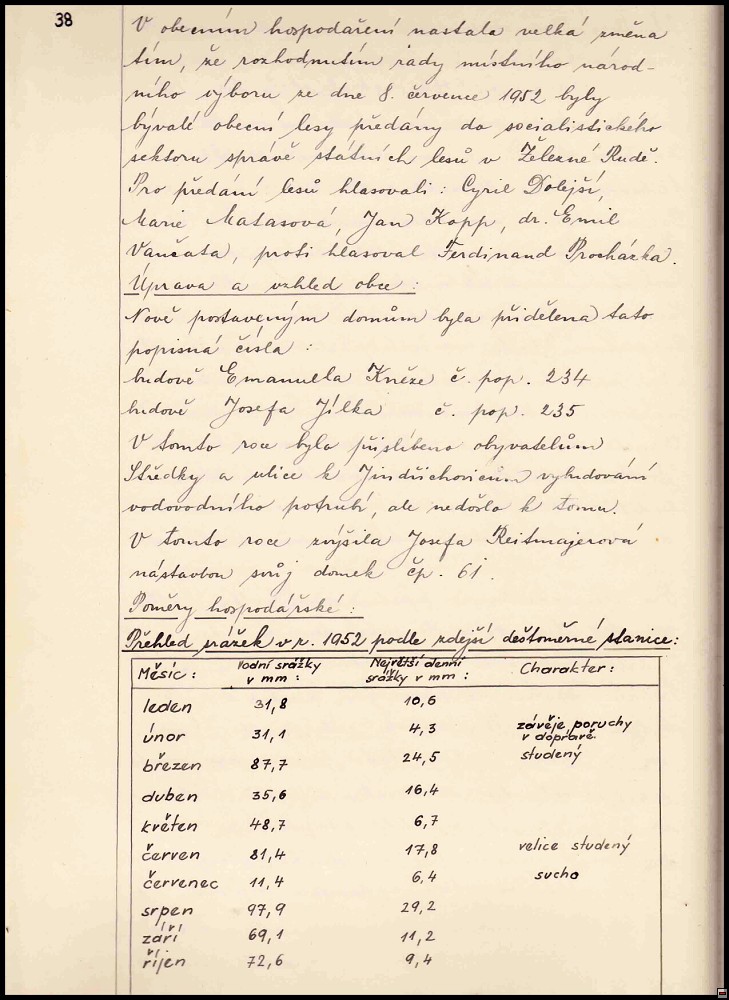 38
V obecním hospodaření nastala velká změna
tím, že rozhodnutím rady místního národ-
ního výboru ze dne 8. července 1952 byly
bývalé obecní lesy předány do socialistického
sektoru správě státních lesů v Železné Rudě.
Pro předání lesů hlasovali: Cyril Dolejší,
Marie Matasová, Jan Kopp, dr. Emil
Vančata, proti hlasoval Ferdinand Procházka.
Úprava a vzhled obce:
Nově postaveným domům byla přidělena tato
popisná čísla:
budově Emanuella Kněze č. pop. 234
budově Josefa Jílka č. pop. 235
V tomto roce bylo přislíbeno obyvatelům
Středky a ulice k Jindřichovicům vybudování
vodovodního potrubí, ale nedošlo k tomu.
V tomto roce zvýšila Josefa Reitmajerová
nástavbou svůj domek čp. 61.
Poměry hospodářské:
Přehled srážek v r. 1952 podle zdejší deštoměrné stanice:
Měsíc: Vodní srážky v mm: Největší denní srážky v mm: Charakter:
leden 31,8 10,6
únor 31,1 4,3 závěje poruchy v dopravě.
březen 87,7 24,5 studený
duben 35,6 16,4
květen 48,7 6,7
červen 81,4 17,8 velice studený
červenec 11,4 6,4 sucho
srpen 97,9 29,2
září 69,1 11,2
říjen 72,6 9,4